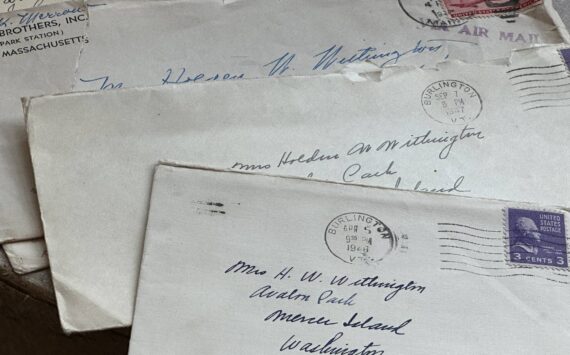 BROTHERS, INC
PARK STATION)
MASSACHUSETTS
AIR MAIL
Mr Holden W. Withington,
BURLINGTON
SEP 7
8 PM
1947
VT.
Mrs Holden W Withington
Park
Island
BURLINGTON
APR 5
9 PM
1948
VT.
UNITED STATES
POSTAGE
3 CENTS 3
Mrs H. W. Withington
Avalon Park
Mercer Island
Washington